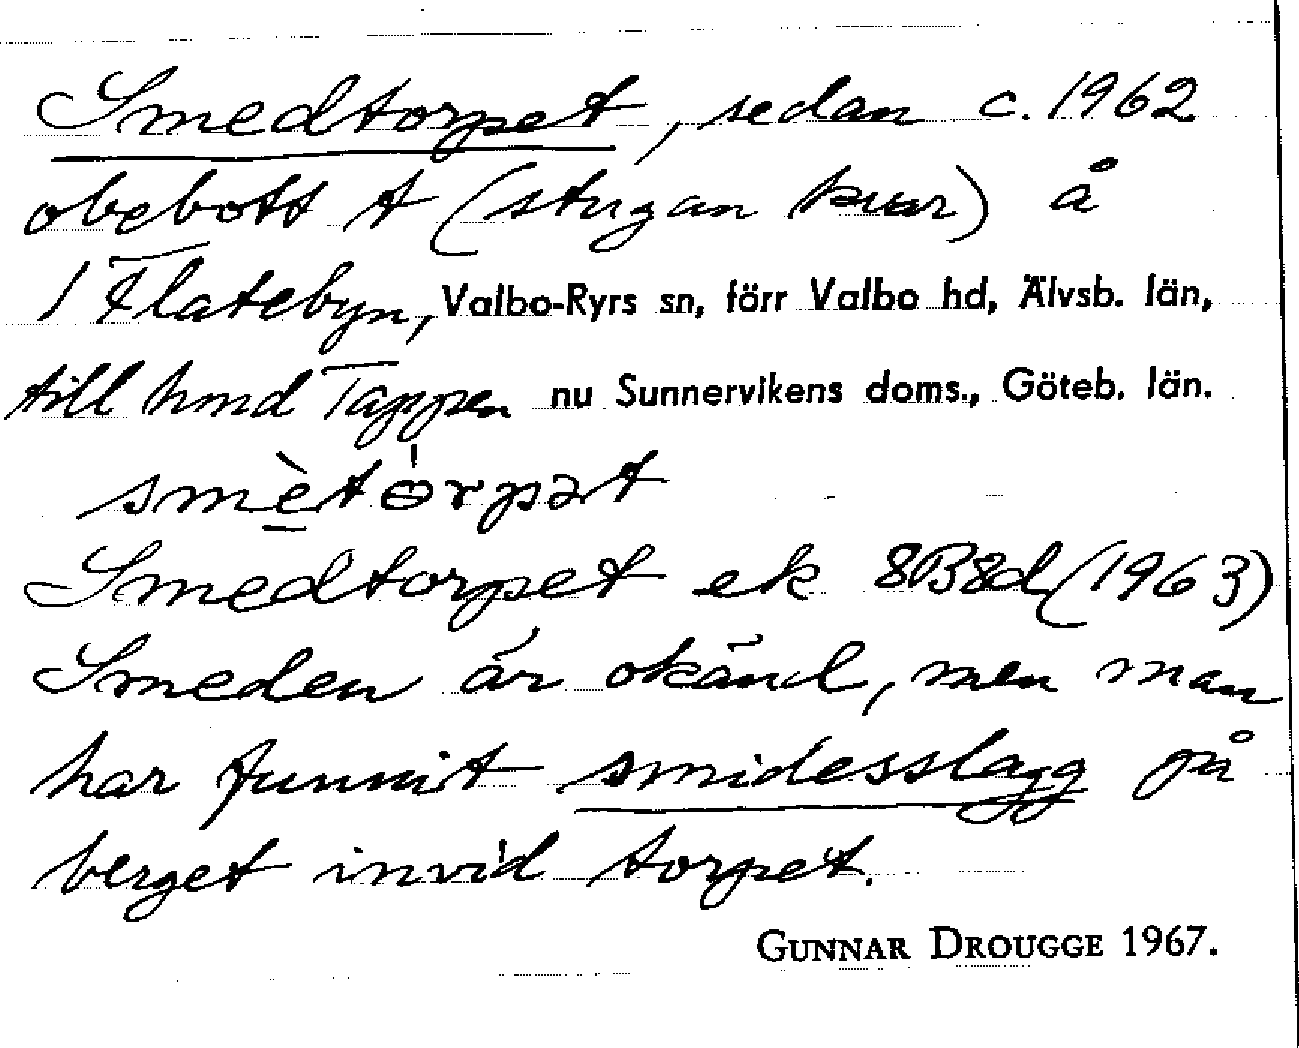 Smedtorpet, sedan c. 1962
obebott t (stugan kvar) å
1 Flatebyn, Valbo-Ryrs sn, förr Valbo hd, Älvsb. län,
till hmd Tappen nu Sunnervikens doms., Göteb. län.
smètɵrpət
Smedtorpet ek 8B8d (1963)
Smeden är okänd, men man
har funnit smidesslagg på
berget invid torpet.
GUNNAR DROUGGE 1967.